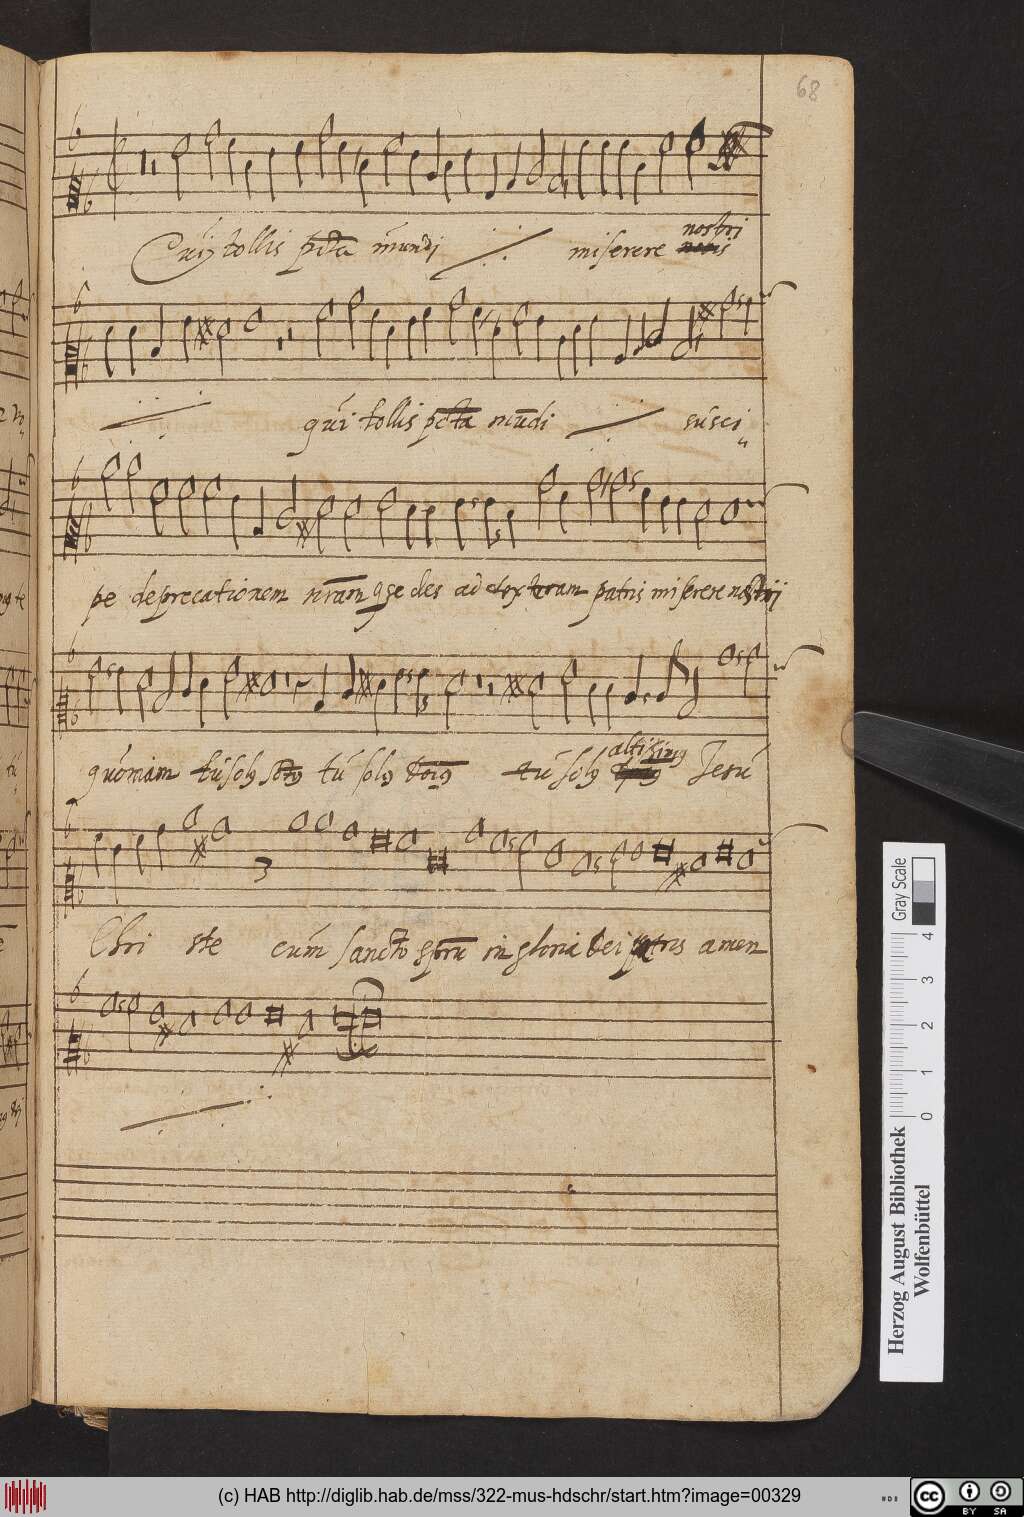 68
Qui tollis pcta mundi miserere nostri
qui tollis pcta mudi susci
pe deprecationem nram qse des ad dexteram patris miserere nostrij
quoniam tu solq tu solq tu solq altisimq Jesu
Chri ste cum sancto spru in gloria dei patris amen
3
Gray Scale
0 1 2 3 4
Herzog August Bibliothek
Wolfenbüttel
(c) HAB http://diglib.hab.de/mss/322-mus-hdschr/start.htm?image=00329
cc
BY SA